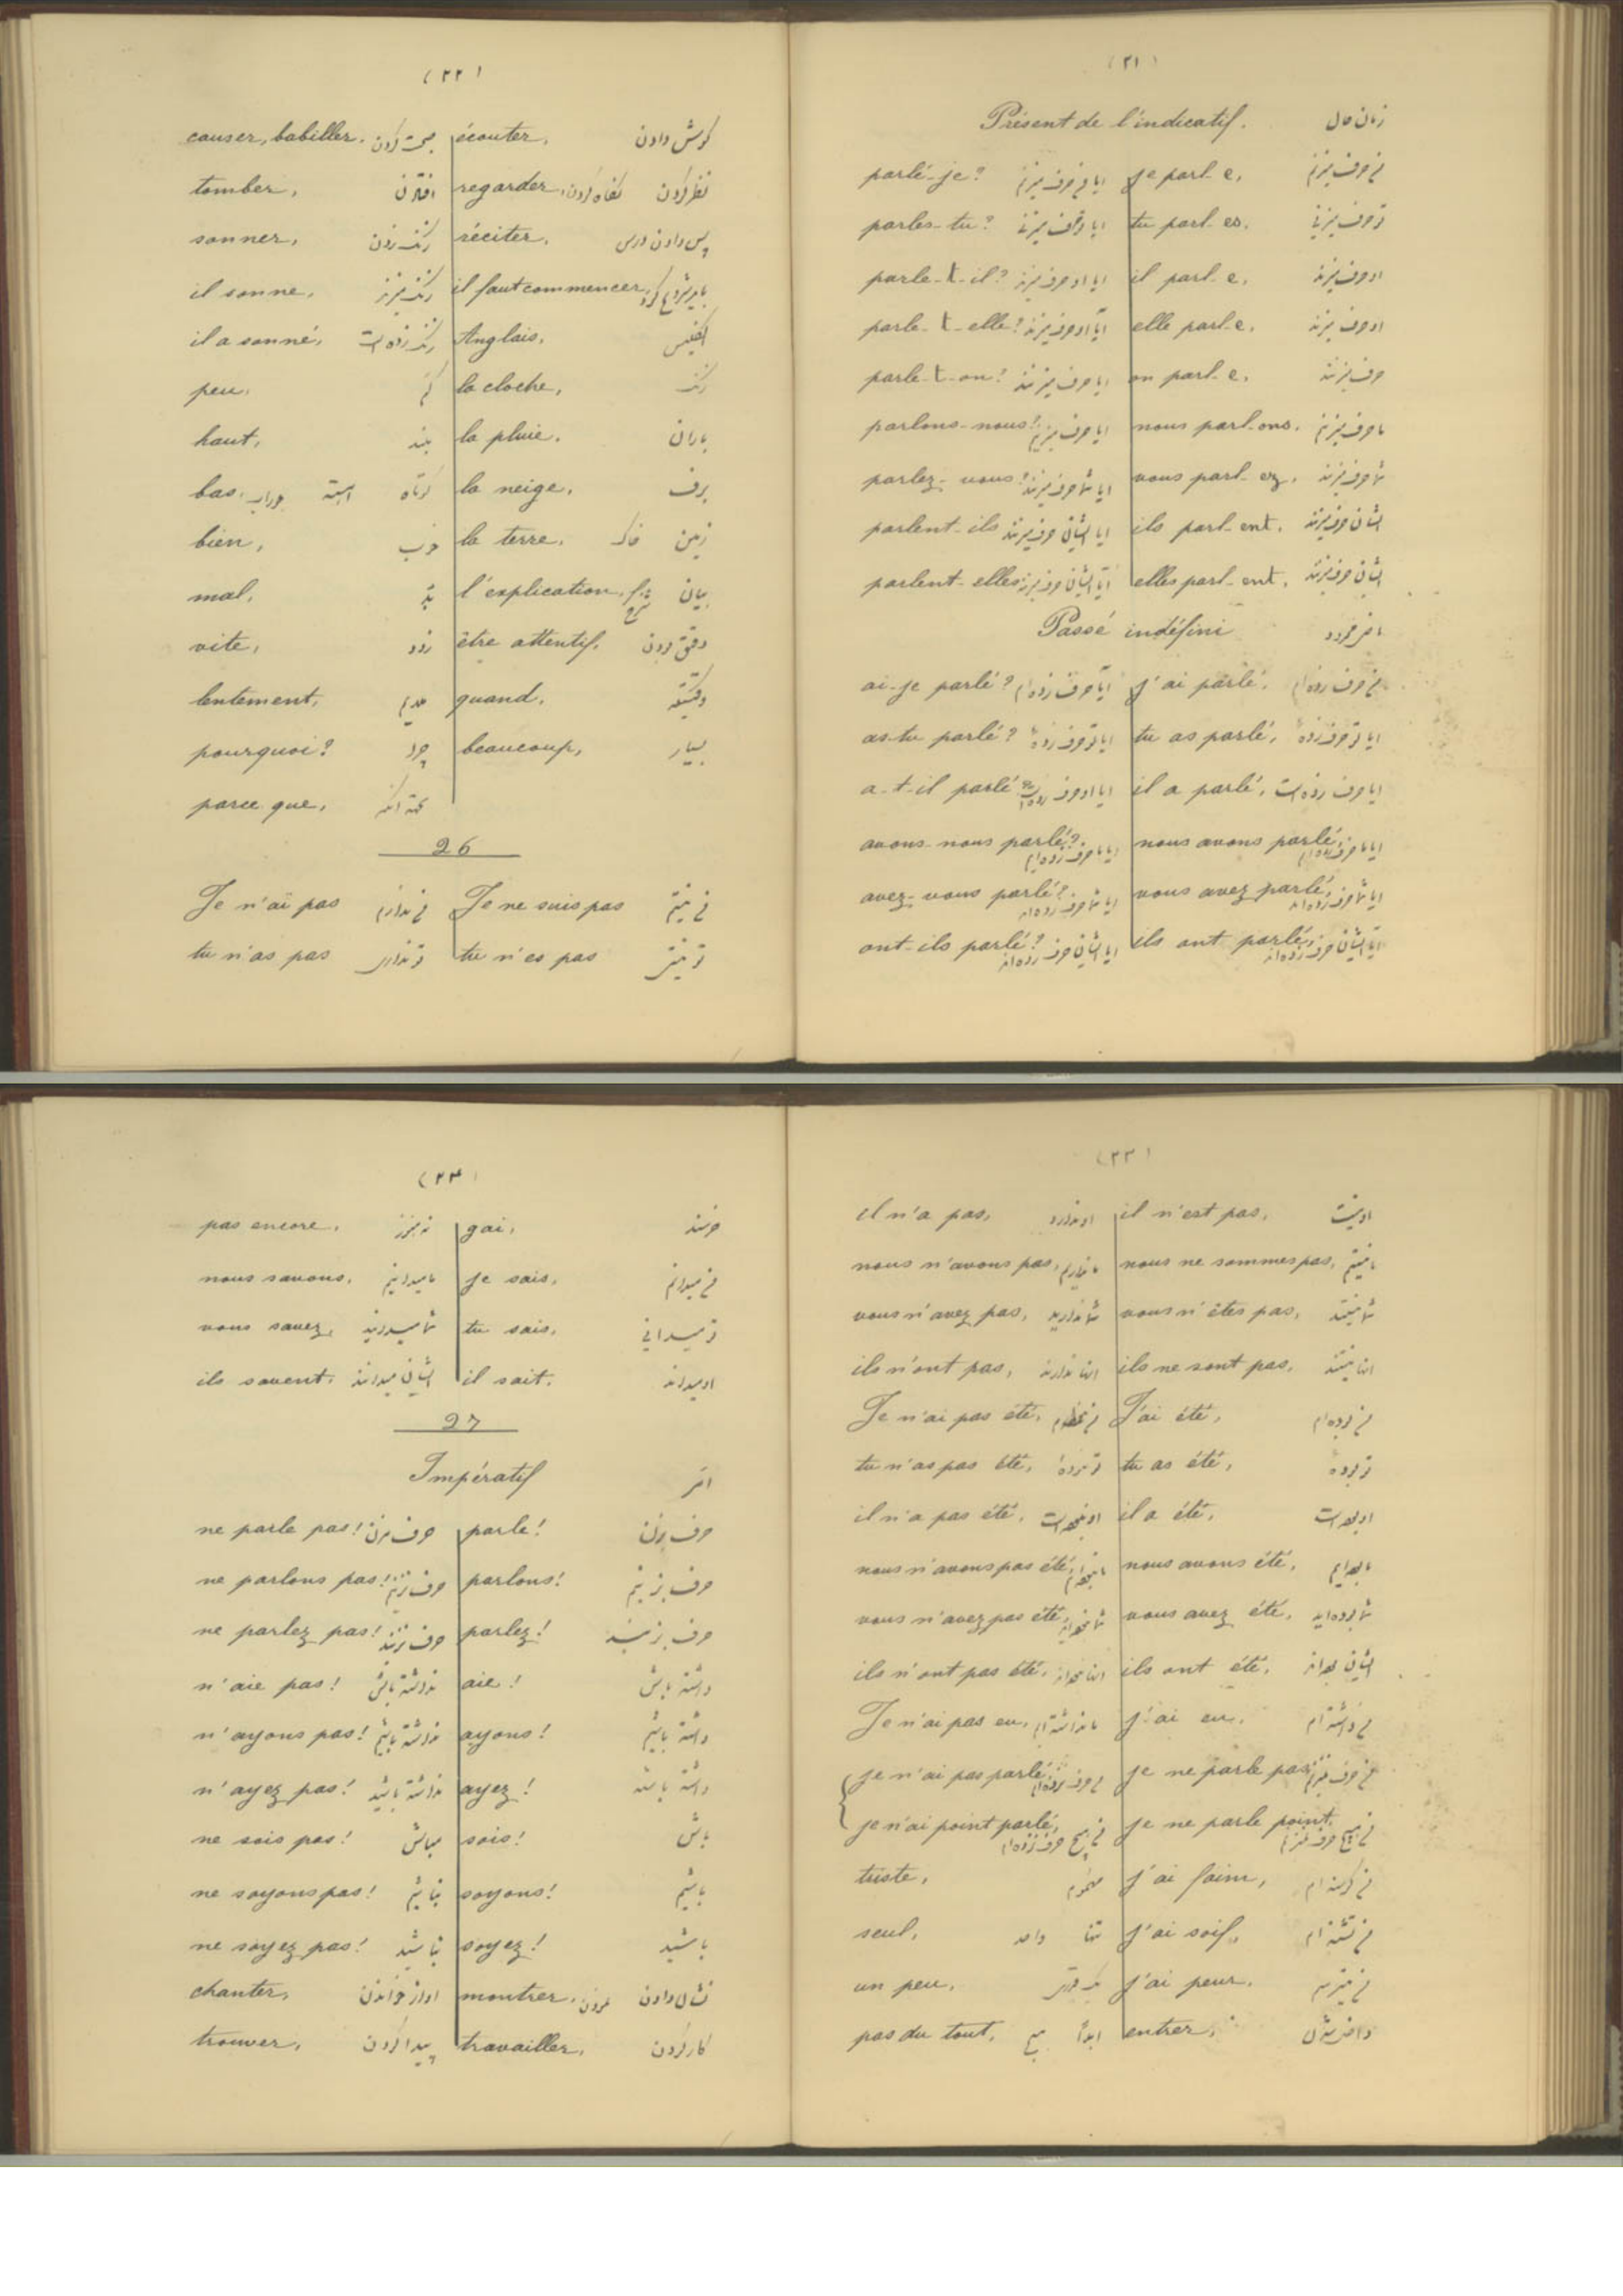 (۲۱)
Présent de l'indicatif. زمان حال
parlé-je? ایا من حرف میزنم je parl-e, من حرف میزنم
parles-tu? ایا تو حرف میزنی tu parl-es, تو حرف میزنی
parle-t-il? ایا او حرف میزند il parl-e, او حرف میزند
parle-t-elle? آیا او حرف میزند elle parl-e, او حرف میزند
parle-t-on? ایا حرف میزنند on parl-e, حرف میزنند
parlons-nous? ایا حرف میزنیم nous parl-ons, ما حرف میزنیم
parlez-vous? ایا شما حرف میزنید vous parl-ez, شما حرف میزنید
parlent-ils ایا ایشان حرف میزنند ils parl-ent, ایشان حرف میزنند
parlent-elles آیا ایشان حرف میزنند elles parl-ent, ایشان حرف میزنند
Passé indéfini
ai-je parlé? آیا حرف زده‌ام j'ai parlé, من حرف زده‌ام
as-tu parlé? ایا تو حرف زدهٔ tu as parlé, ایا تو حرف زدهٔ
a-t-il parlé? ایا او حرف زده است il a parlé, ایا حرف زده است
avons-nous parlé? ایا ما حرف زده‌ایم nous avons parlé, ایا ما حرف زده‌ایم
avez-vous parlé? ایا شما حرف زده‌اید vous avez parlé, ایا شما حرف زده‌اید
ont-ils parlé? ایا ایشان حرف زده‌اند ils ont parlé, آیا ایشان حرف زده‌اند
(۲۲)
causer, babiller, صحبت کردن écouter, گوش دادن
tomber, افتادن regarder, نگاه کردن نظر کردن
sonner, زنگ زدن réciter, پس دادن درس
il sonne, زنگ میزند il faut commencer, باید شروع کرد
il a sonné, زنگ زده است Anglais, انگلیس
peu, کم la cloche, زنگ
haut, بلند la pluie, باران
bas, جوراب آهسته کوتاه la neige, برف
bien, خوب la terre, خاک زمین
mal, بد l'explication, شرح بیان
vite, زود être attentif, دقیق بودن
lentement, quand, وقتیکه
pourquoi? چرا beaucoup, بسیار
parce que,
26
Je n'ai pas من ندارم Je ne suis pas من نیستم
tu n'as pas تو نداری tu n'es pas تو نیستی
(۲۳)
il n'a pas, او ندارد il n'est pas, او نیست
nous n'avons pas, ما نداریم nous ne sommes pas, ما نیستیم
vous n'avez pas, شما ندارید vous n'êtes pas, شما نیستید
ils n'ont pas, آنها ندارند ils ne sont pas, آنها نیستند
Je n'ai pas été, J'ai été, من بوده‌ام
tu n'as pas été, تو نبودهٔ tu as été, تو بودهٔ
il n'a pas été, او نبوده است il a été, او بوده است
nous n'avons pas été, ما نبوده‌ایم nous avons été, ما بوده‌ایم
vous n'avez pas été, شما نبوده‌اید vous avez été, شما بوده‌اید
ils n'ont pas été, آنها نبوده‌اند ils ont été, ایشان بوده‌اند
Je n'ai pas eu, ما نداشته‌ام j'ai eu, من داشته‌ام
je n'ai pas parlé, من حرف نزده‌ام je ne parle pas, من حرف نمیزنم
je n'ai point parlé, من هیچ حرف نزده‌ام je ne parle point, من هیچ حرف نمیزنم
triste, مهموم j'ai faim, من گرسنه‌ام
seul, واحد تنها j'ai soif, من تشنه‌ام
un peu, j'ai peur, من میترسم
pas du tout, هیچ ابداً entrer, داخل شدن
(۲۴)
pas encore, نه هنوز gai, خرسند
nous savons, ما میدانیم je sais, من میدانم
vous savez, شما میدانید tu sais, تو میدانی
ils savent, ایشان میدانند il sait, او میداند
27
Impératif امر
ne parle pas! حرف مزن parle! حرف بزن
ne parlons pas! حرف نزنیم parlons! حرف بزنیم
ne parlez pas! حرف نزنید parlez! حرف بزنید
n'aie pas! نداشته باش aie! داشته باش
n'ayons pas! نداشته باشیم ayons! داشته باشیم
n'ayez pas! نداشته باشید ayez! داشته باشید
ne sois pas! مباش sois! باش
ne soyons pas! نباشیم soyons! باشیم
ne soyez pas! نباشید soyez! باشید
chanter, اواز خواندن montrer, نمودن نشان دادن
trouver, پیدا کردن travailler, کار کردن